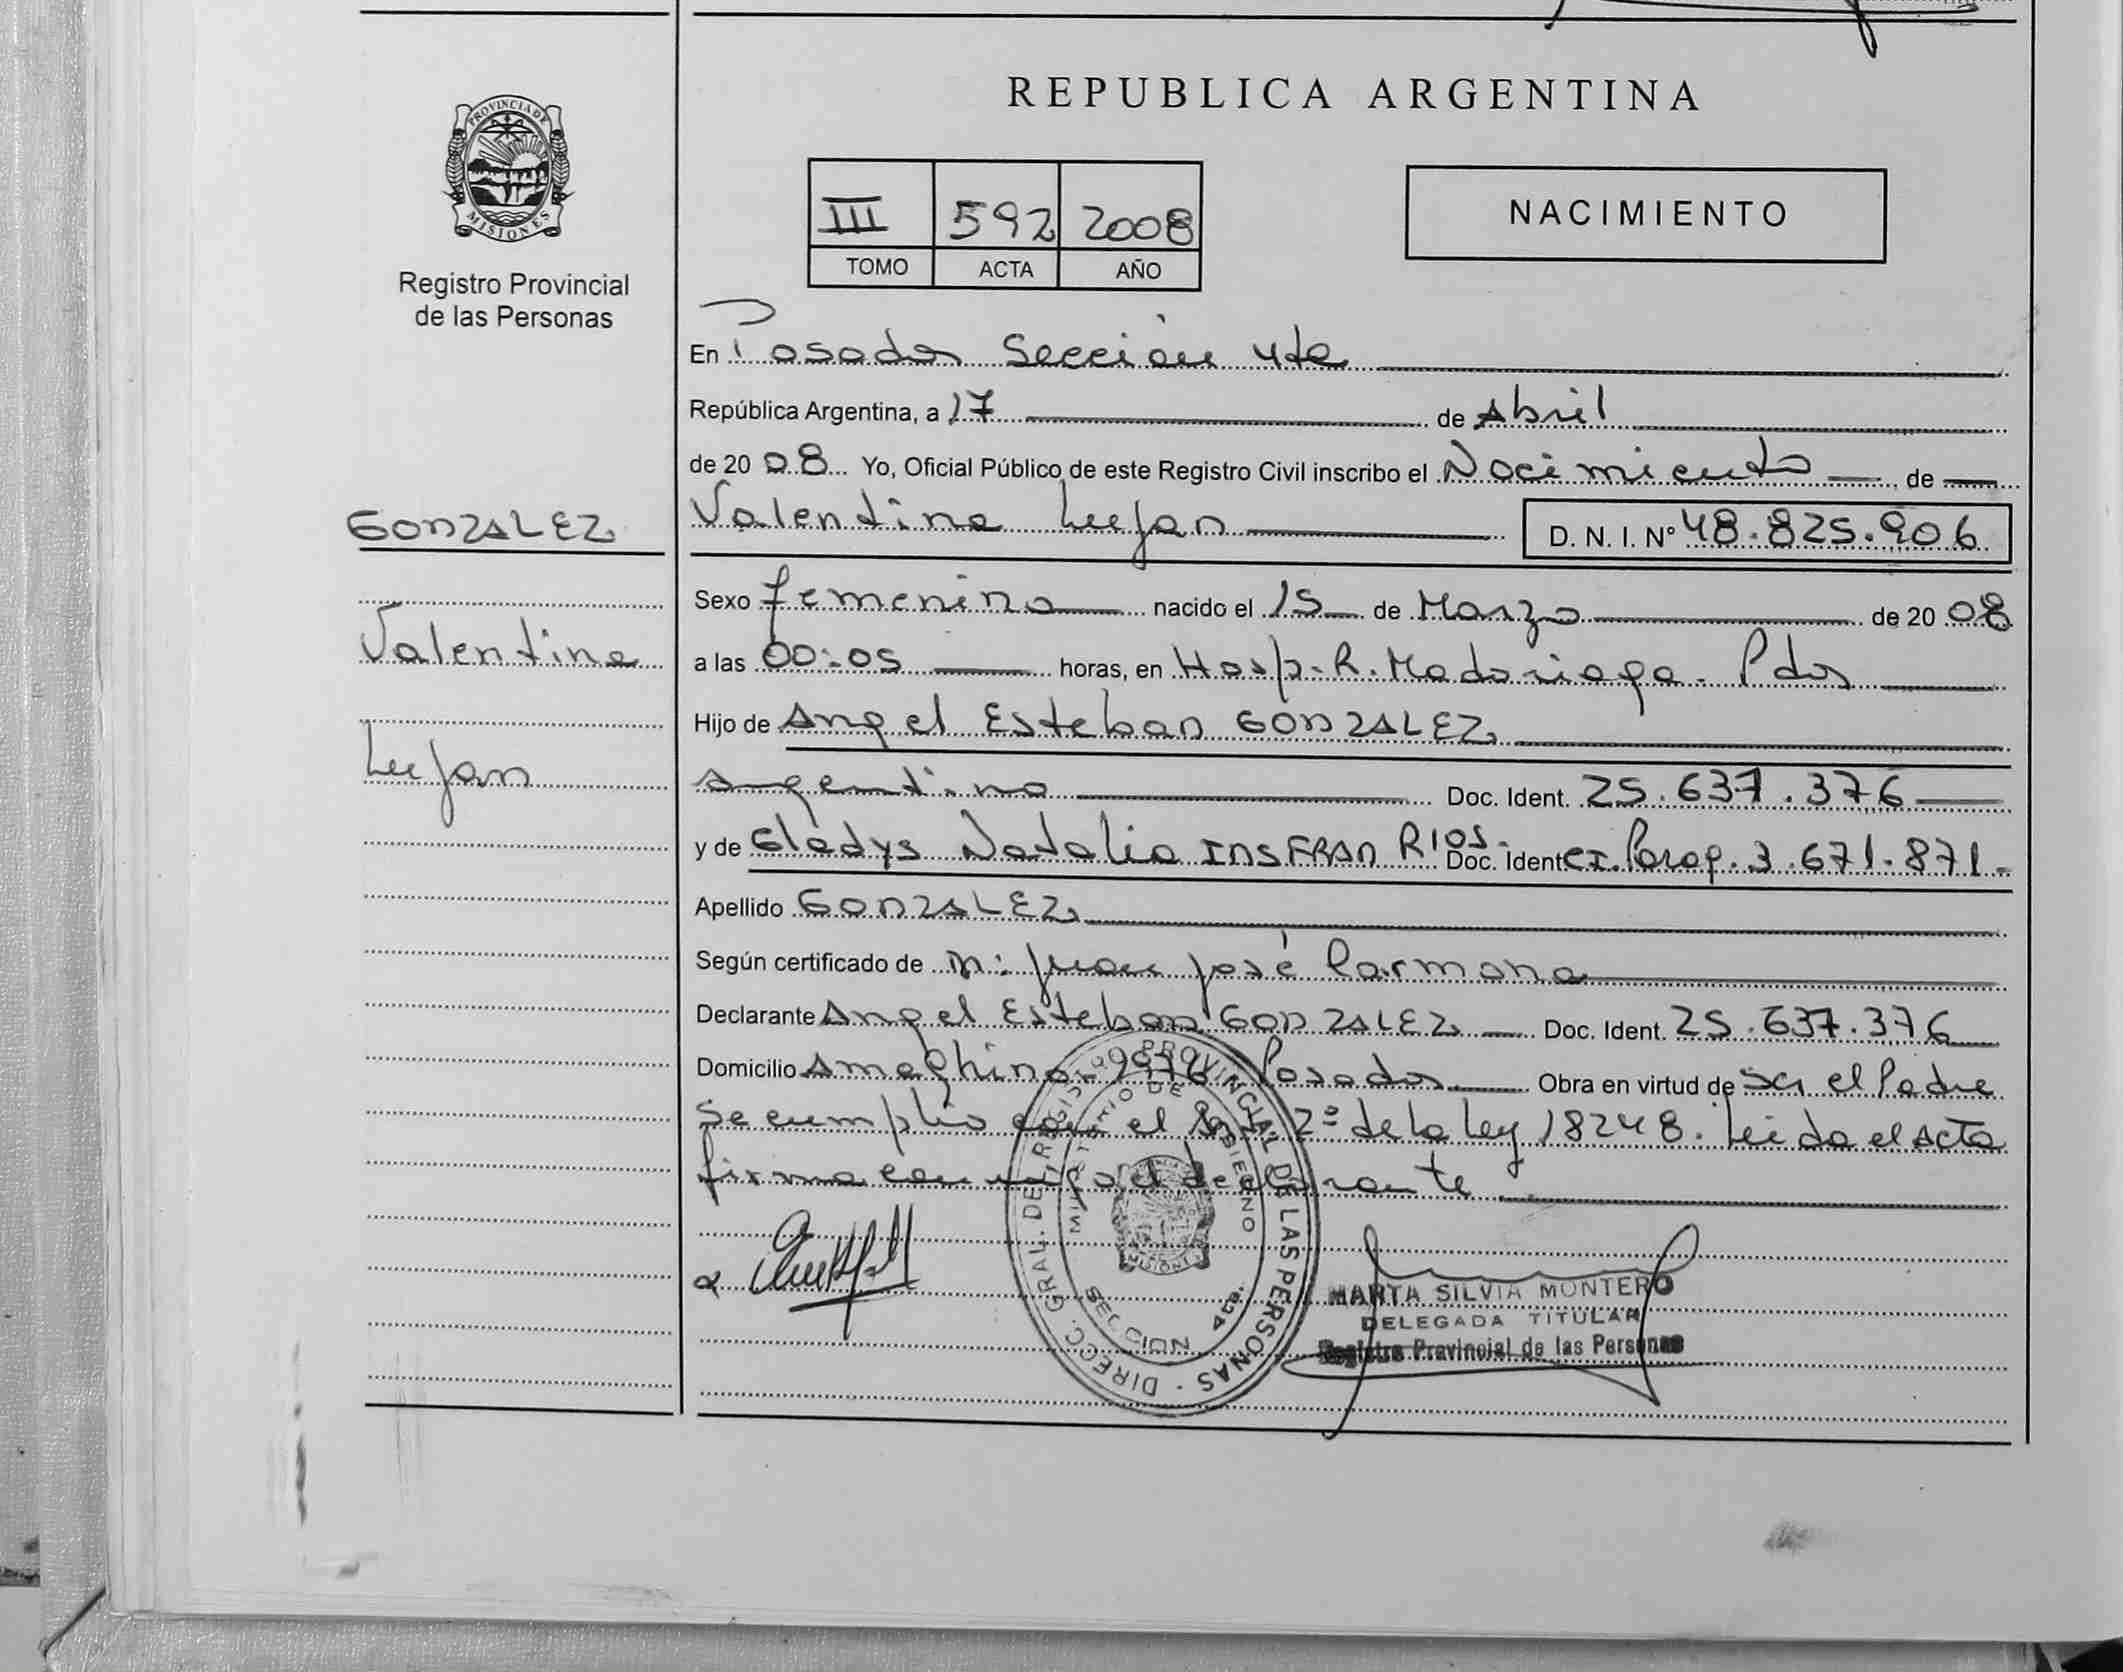 REPUBLICA ARGENTINA
PROVINCIA DE
MISIONES
Registro Provincial
de las Personas
III 592 2008
TOMO ACTA AÑO
NACIMIENTO
En Posadas Sección 4ta
República Argentina, a 17 de Abril
de 20 08 Yo, Oficial Público de este Registro Civil inscribo el Nacimiento de
GONZALEZ
Valentina Lujan D. N. I. Nº 48.825.906
Sexo femenino nacido el 15 de Marzo de 20 08
Valentina
a las 00:05 horas, en Hosp. R. Madariaga. Pdas
Hijo de Angel Esteban GONZALEZ
Lujan
Argentino Doc. Ident. 25.637.376
y de Gladys Natalia INSFRAN RIOS. Doc. Ident. C.I. Parag. 3.671.871.
Apellido GONZALEZ
Según certificado de Juan José Carmona
Declarante Angel Esteban GONZALEZ Doc. Ident. 25.637.376
Domicilio Posadas Obra en virtud de ser el Padre
Se cumplio con el Art 2º de la Ley 18248. Leida el Acta
firma conmigo el declarante
DIRECC. GRAL. DEL REGISTRO PROVINCIAL DE LAS PERSONAS
MINISTERIO DE GOBIERNO
MISIONES
SECCION 4ta.
MARTA SILVIA MONTERO
DELEGADA TITULAR
Registro Provincial de las Personas